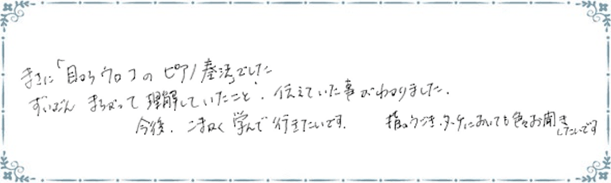 まさに「目からウロコ」の ピアノ奏法でした
ずいぶん まちがって 理解していたこと、伝えていた事がわかりました。
今後、こまかく 学んで 行きたいです。 指のうごき、タッチにおいても 色々お聞き
したいです